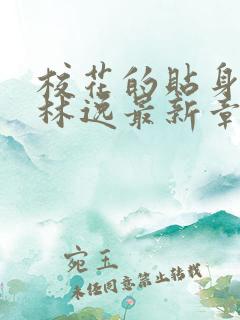 校花的贴身
林逸最新章
宛玉
未经同意禁止转载